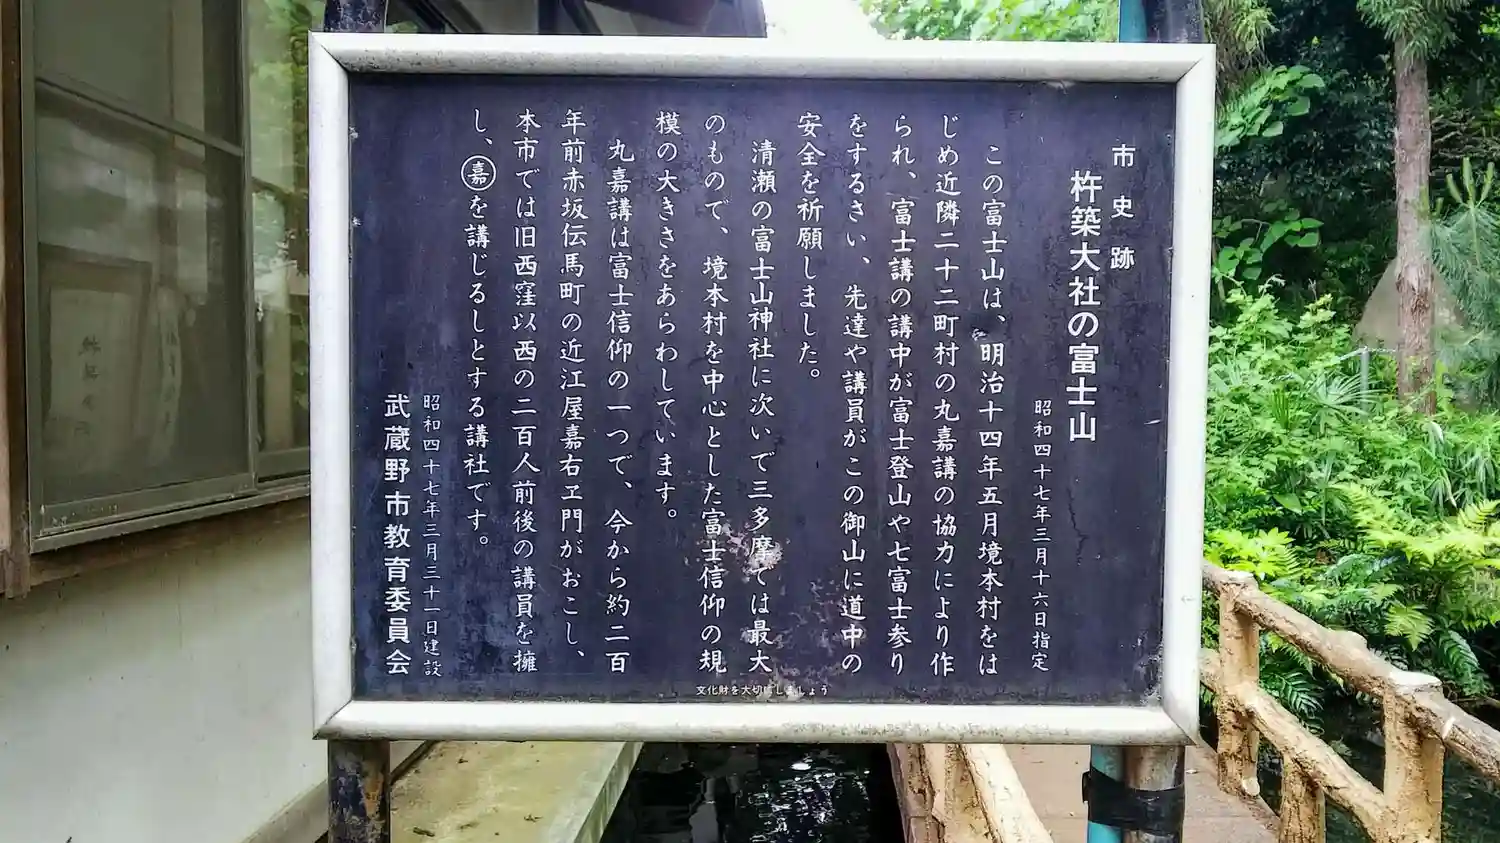 市史跡
杵築大社の富士山
昭和四十七年三月十六日指定
この富士山は、明治十四年五月境本村をは
じめ近隣二十二町村の丸嘉講の協力により作
られ、富士講の講中が富士登山や七富士参り
をするさい、先達や講員がこの御山に道中の
安全を祈願しました。
清瀬の富士山神社に次いで三多摩では最大
のもので、境本村を中心とした富士信仰の規
模の大きさをあらわしています。
丸嘉講は富士信仰の一つで、今から約二百
年前赤坂伝馬町の近江屋嘉右ヱ門がおこし、
本市では旧西窪以西の二百人前後の講員を擁
し、㊑を講じるしとする講社です。
昭和四十七年三月三十一日建設
武蔵野市教育委員会
文化財を大切にしましょう